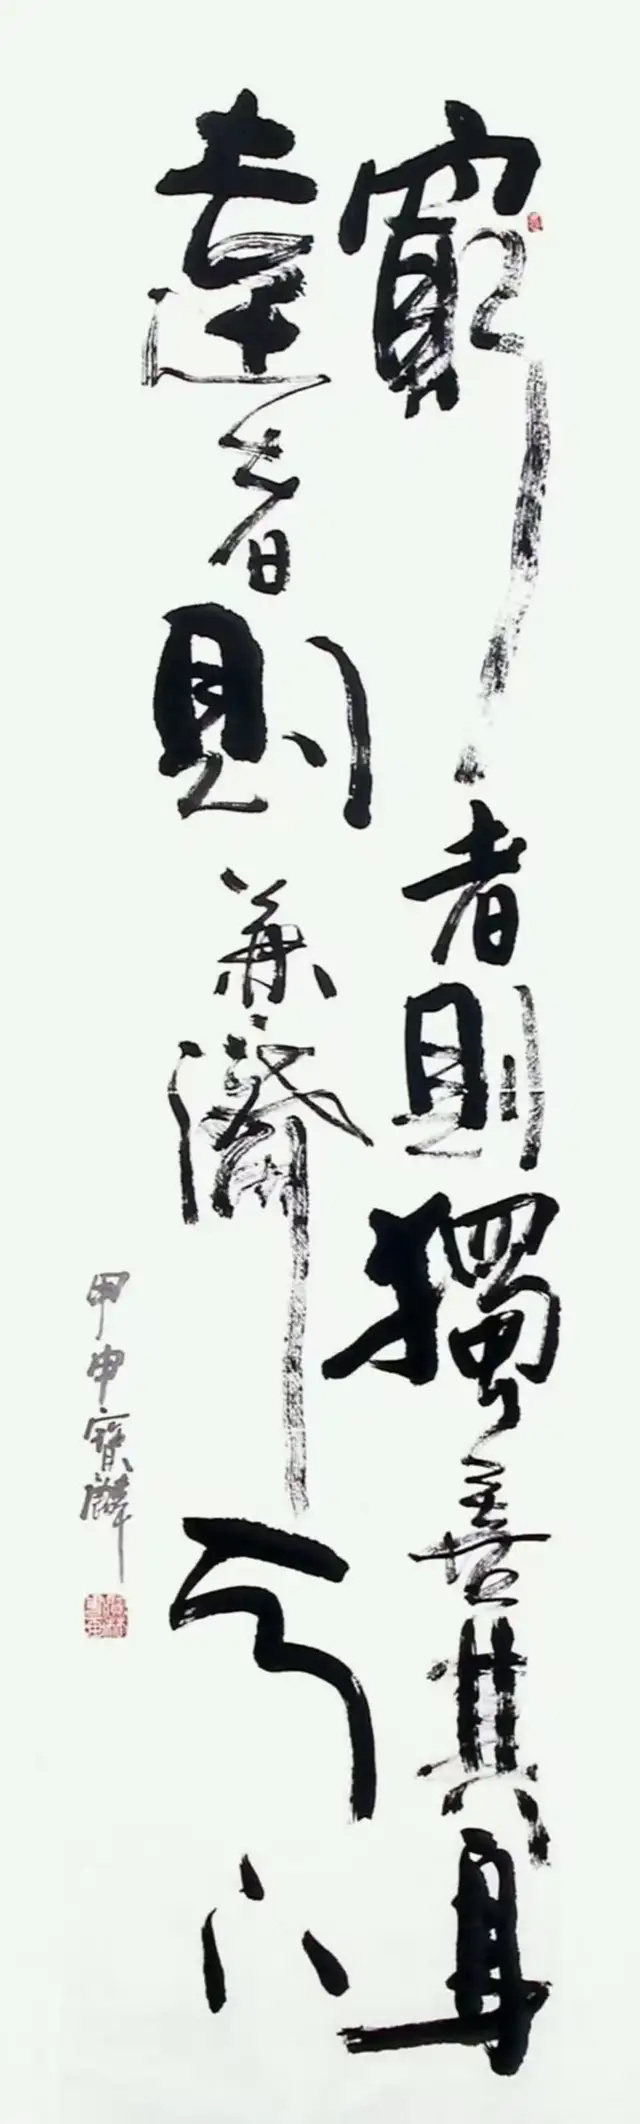 窮者則獨善其身
達者則兼濟天下
甲申寶麟